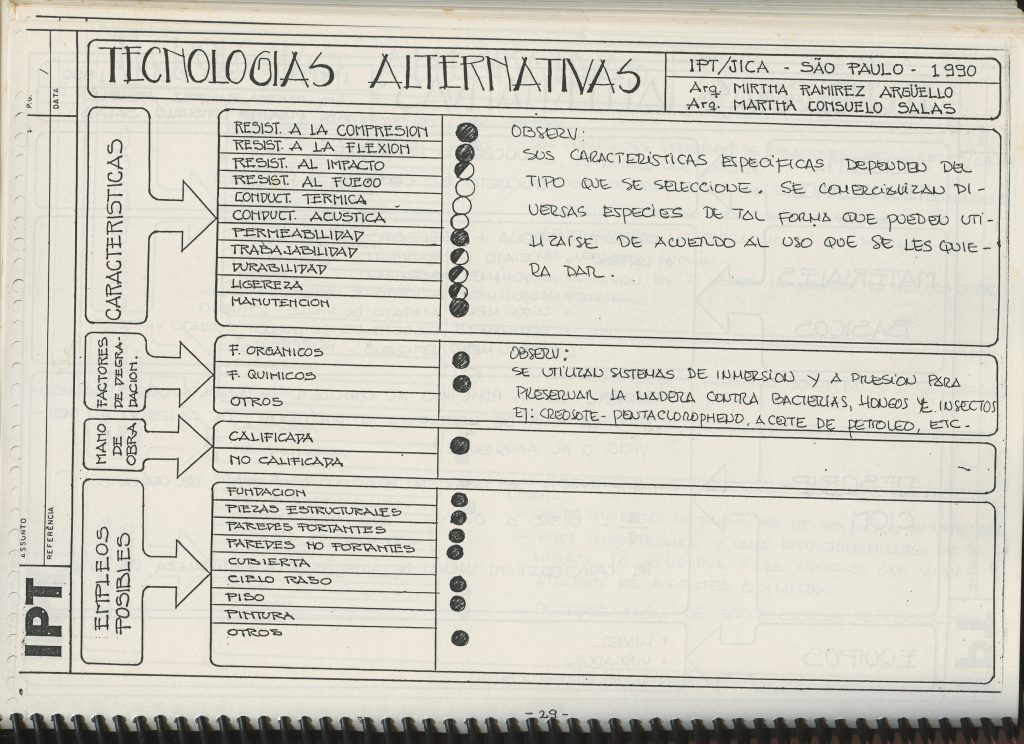 TECNOLOGIAS ALTERNATIVAS
IPT/JICA - SÃO PAULO - 1990
Arq. MIRTHA RAMIREZ ARGÜELLO
Arq. MARTHA CONSUELO SALAS
CARACTERISTICAS
RESIST. A LA COMPRESION
RESIST. A LA FLEXION
RESIST. AL IMPACTO
RESIST. AL FUEGO
CONDUCT. TERMICA
CONDUCT. ACUSTICA
PERMEABILIDAD
TRABAJABILIDAD
DURABILIDAD
LIGEREZA
MANUTENCION
OBSERV:
SUS CARACTERÍSTICAS ESPECÍFICAS DEPENDEN DEL
TIPO QUE SE SELECCIONE. SE COMERCIALIZAN DI-
VERSAS ESPECIES DE TAL FORMA QUE PUEDEN UTI-
LIZARSE DE ACUERDO AL USO QUE SE LES QUIE-
RA DAR.
FACTORES
DE DEGRA-
DACION.
F. ORGANICOS
F. QUIMICOS
OTROS
OBSERV:
SE UTILIZAN SISTEMAS DE INMERSION Y A PRESION PARA
PRESERVAR LA MADERA CONTRA BACTERIAS, HONGOS E INSECTOS
EJ: CREOSOTE - PENTACLOROPHENO, ACEITE DE PETROLEO, ETC.
MANO
DE
OBRA
CALIFICADA
NO CALIFICADA
EMPLEOS
POSIBLES
FUNDACION
PIEZAS ESTRUCTURALES
PAREDES PORTANTES
PAREDES NO PORTANTES
CUBIERTA
CIELO RASO
PISO
PINTURA
OTROS
DATA
ASSUNTO
REFERÊNCIA
IPT
- 29 -